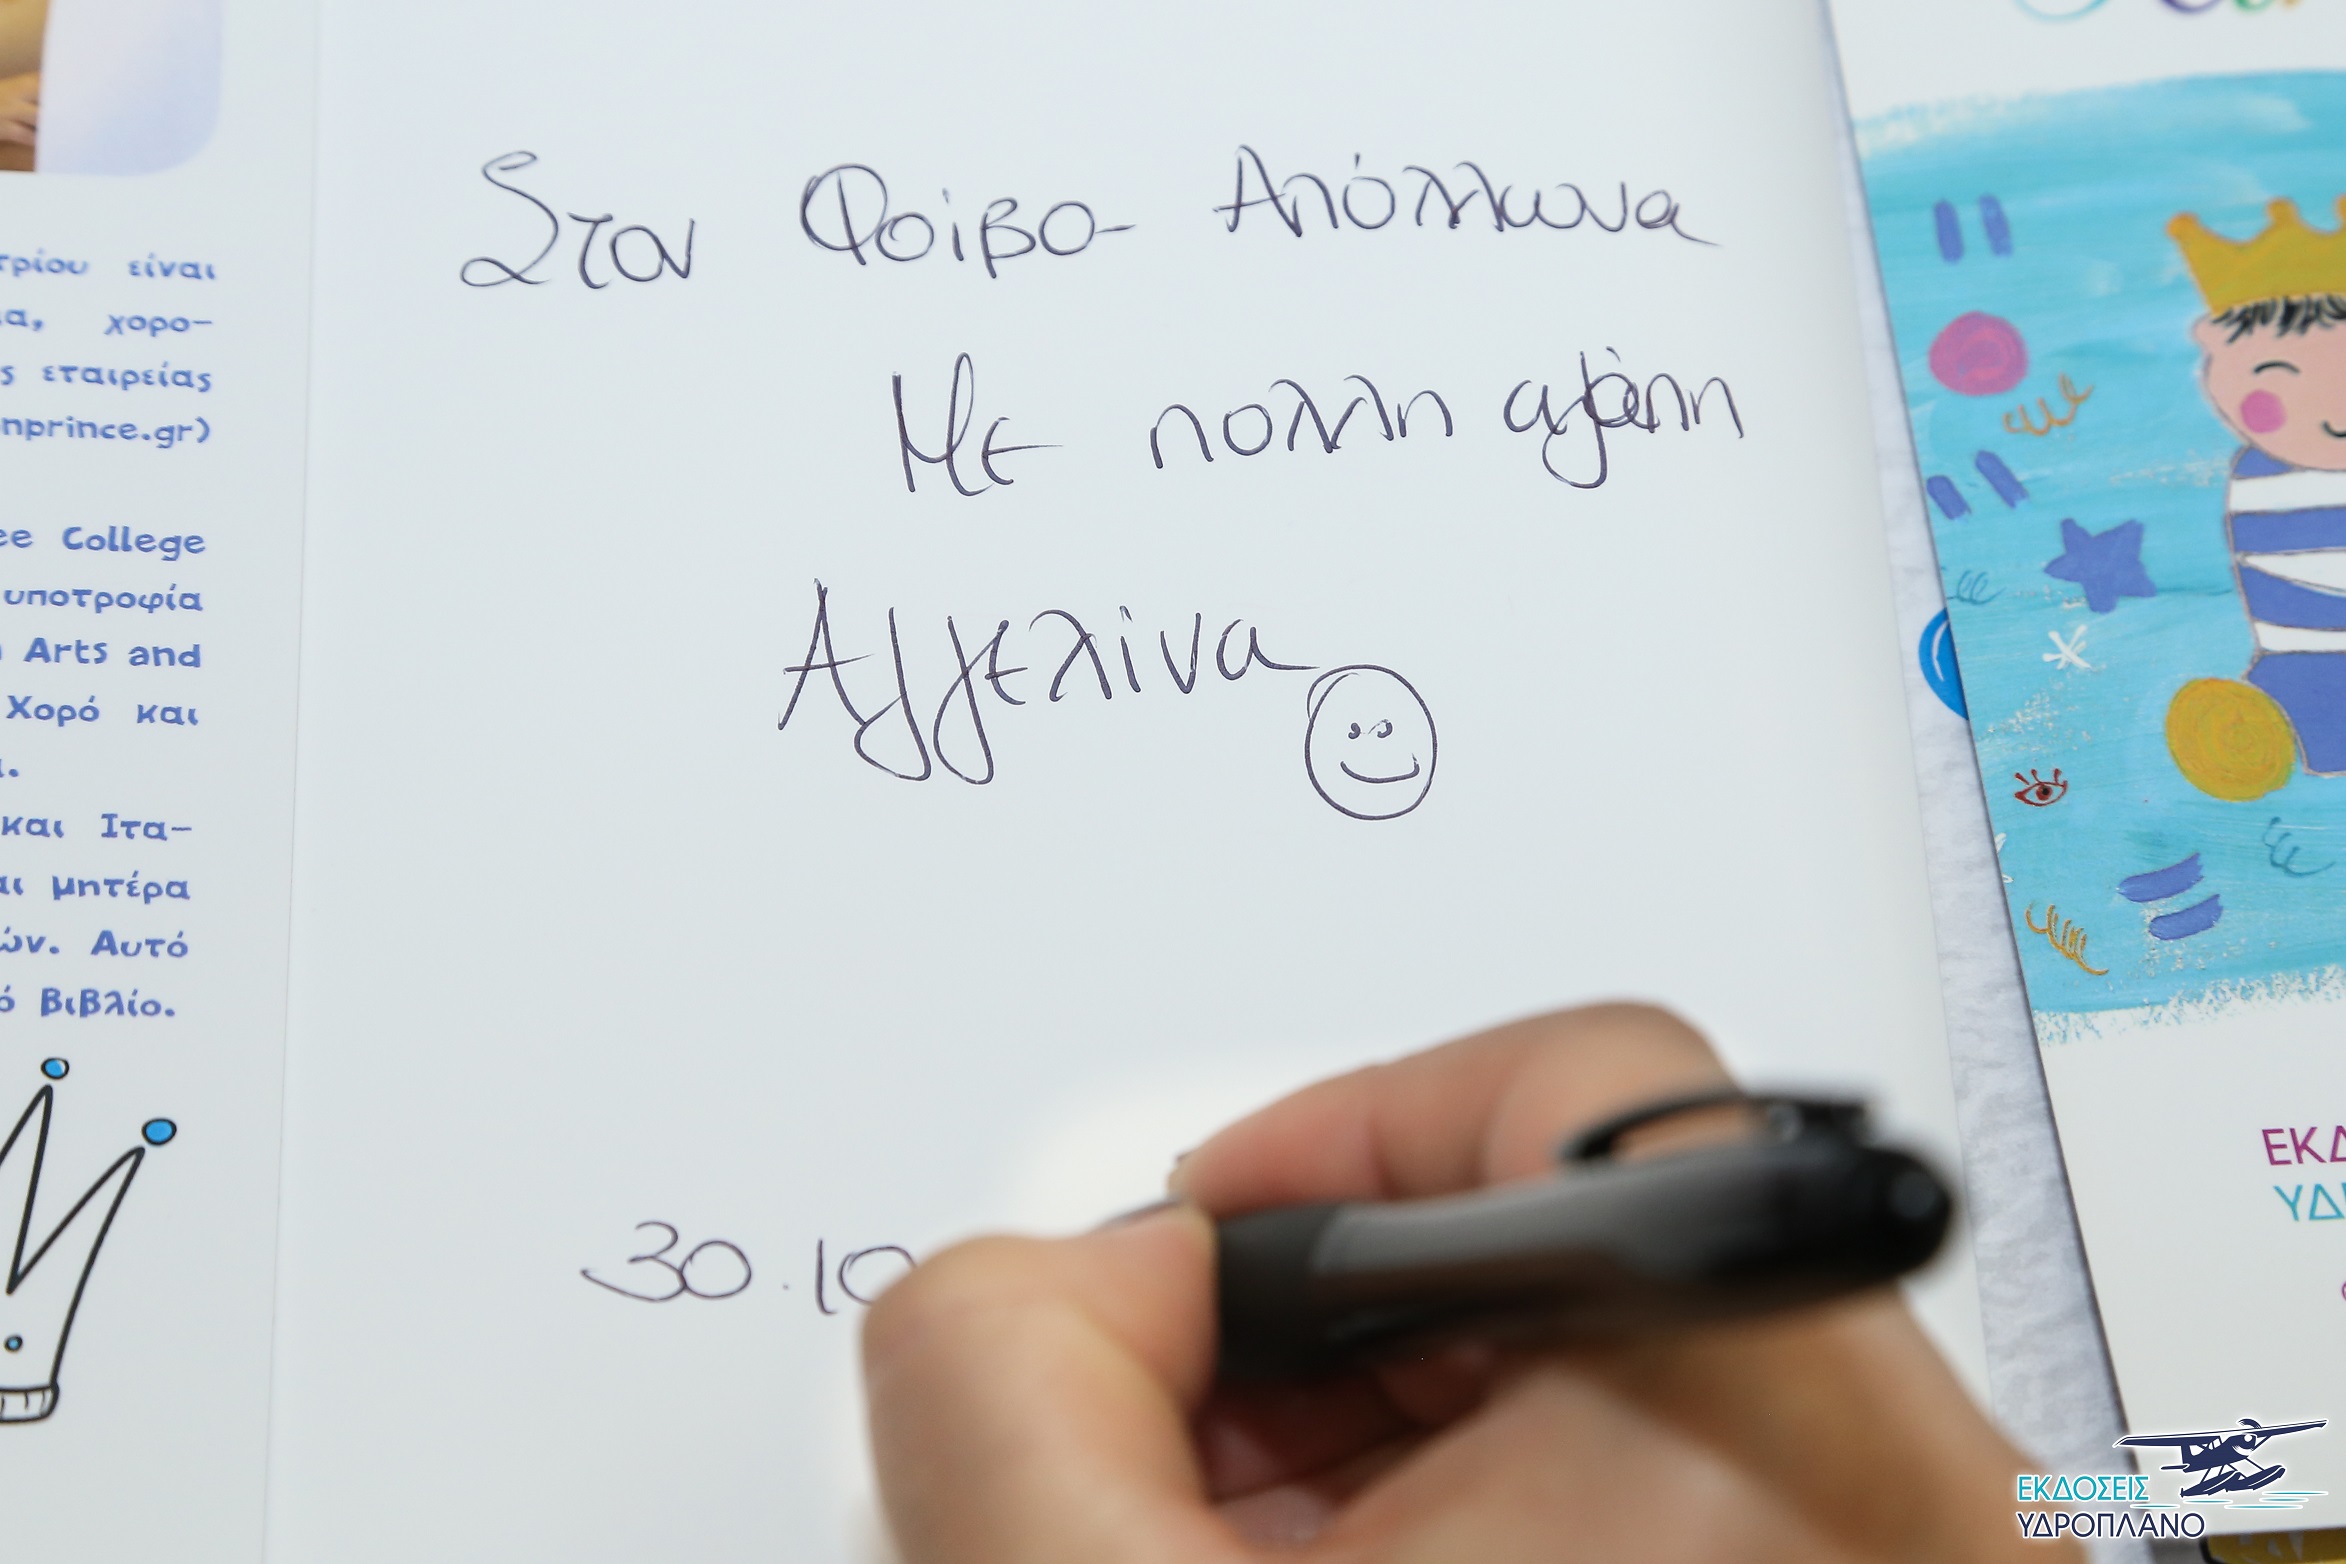 τρίου είναι
α, χορο-
ς εταιρείας
nprince.gr)
ee College
υποτροφία
Arts and
Χορό και
και Ιτα-
αι μητέρα
ών. Αυτό
ό βιβλίο.
Στον Φοίβο- Απόλλωνα
Με πολλη αγάπη
Αγγελίνα
30.10
ΕΚΔ
ΥΔ
ΕΚΔΟΣΕΙΣ
ΥΔΡΟΠΛΑΝΟ